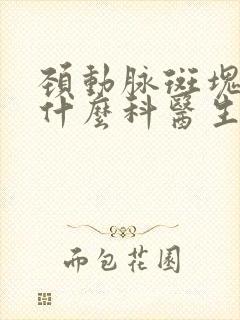 頸動脉斑塊
什麼科醫生
而包花園